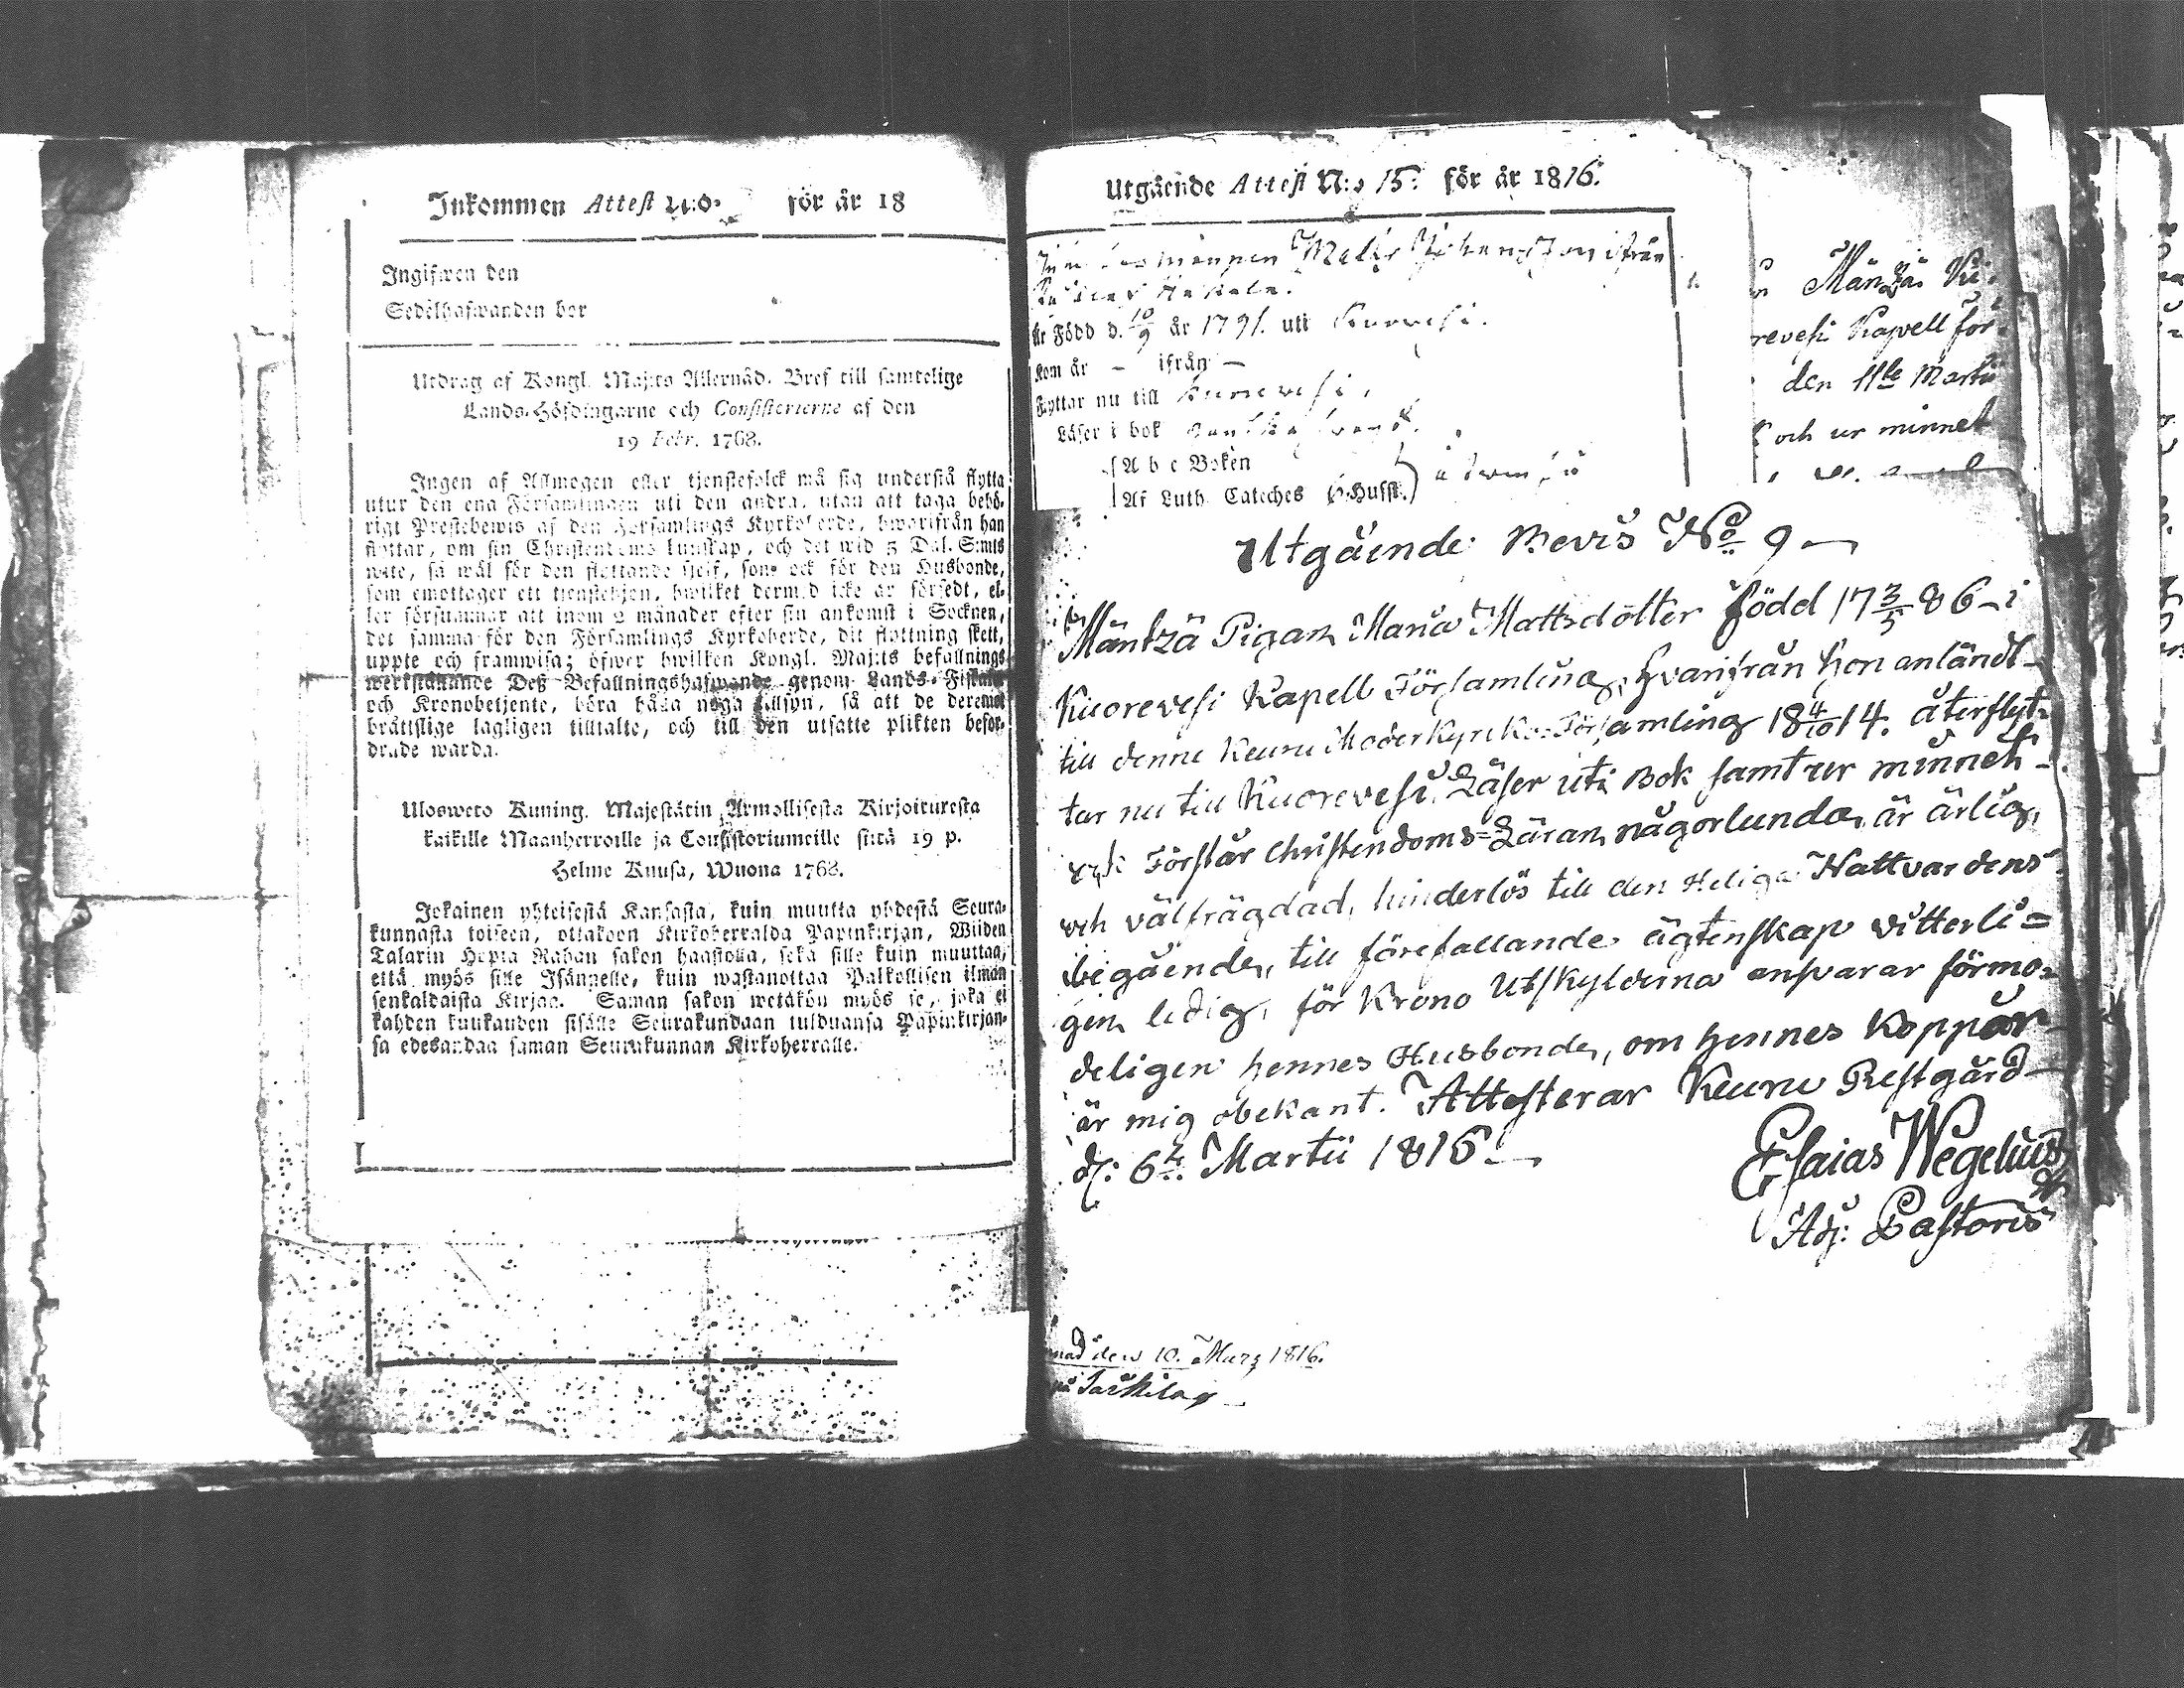 Inkommen Attest N:o. för år 18
Ingifwen den
Sedelhafwanden bor
Utdrag af Kongl. Maj:ts Allernåd. Bref till samtelige
Lands-Höfdingarne och Consistorierne af den
19 Febr. 1768.
Ingen af Allmogen eller tjenstefolck må sig understå flytta
utur den ena Församlingen uti den andra, utan att taga behö-
rigt Prestebewis af den Församlings Kyrkoherde, hworifrån han
flyttar, om sin Christendoms kunskap, och det wid 5 Dal. S:mts
wite, så wäl för den flyttande sjelf, som ock för den Husbonde,
som emottager ett tjenstehjon, hwilket dermed icke är försedt, el-
ler försummar att inom 2 månader efter sin ankomst i Socknen,
det samma för den Församlings Kyrkoherde, dit flyttning skett,
uppte och framwisa; öfwer hwilken Kongl. Maj:ts befallnings
werkställande Deß Befallningshafwande genom Lands-Fiskaler
och Kronobetjente, böra hålla noga tillsyn, så att de deremot
bråttslige lagligen tilltalte, och till den utsatte plikten befor-
drade warda.
Ulosweto Kuning. Majestätin Armollisesta Kirjoituxesta
kaikille Maanherroille ja Consistoriumeille siitä 19 p.
Helme Kuusa, Wuona 1768.
Jokainen yhteisestä Kansasta, kuin muutta yhdestä Seura-
kunnasta toiseen, ottakoen Kirkoherralda Papinkirjan, Wiiden
Talarin Hopia Rahan sakon haastolla, sekä sille kuin muuttaa,
että myös sille Isännelle, kuin wastanottaa Palkollisen ilman
senkaldaista Kirjaa. Saman sakon wetäkön myös se, joka ei
kahden kuukauden sisälle Seurakundaan tulduansa Papinkirjan-
sa edesandaa saman Seurakunnan Kirkoherralle.
Utgående Attest N:o 15. för år 1816.
ifrån
är Född d. 10/9 år 1791. uti Kuorevesi.
kom år - ifrån -
Flyttar nu till Kuorevesi,
Läser i bok
A b c Boken
Af Luth. Cateches
Mänzä
revesi Kapell för-
den 11te Martii
och ur minnet
Utgående Bevis No 9
Mäntzä Pigan Maria Mattsdotter född 17 3/5 86 i
Kuorevesi Kapell Församling, hvarifrån hon anländt
till denne Keuru Moderkyrko-Församling 18 4/10 14. återflyt-
tar nu till Kuorevesi. Läser uti Bok samt ur minnet
och Förstår Christendoms=Läran någorlunda, är ärlig,
och välfrägdad, hinderlös till den Heliga Nattvardens
begående, till förefallande ägtenskap vitterli=
gen ledig, för Krono Utskylderna ansvarar förmo=
deligen hennes Husbonde, om hennes Koppår
är mig obekant. Attesterar Keuru Prestgård
d: 6te Martii 1816
Esaias Wegelius
Adj: Pastoris
den 10. Marz 1816.